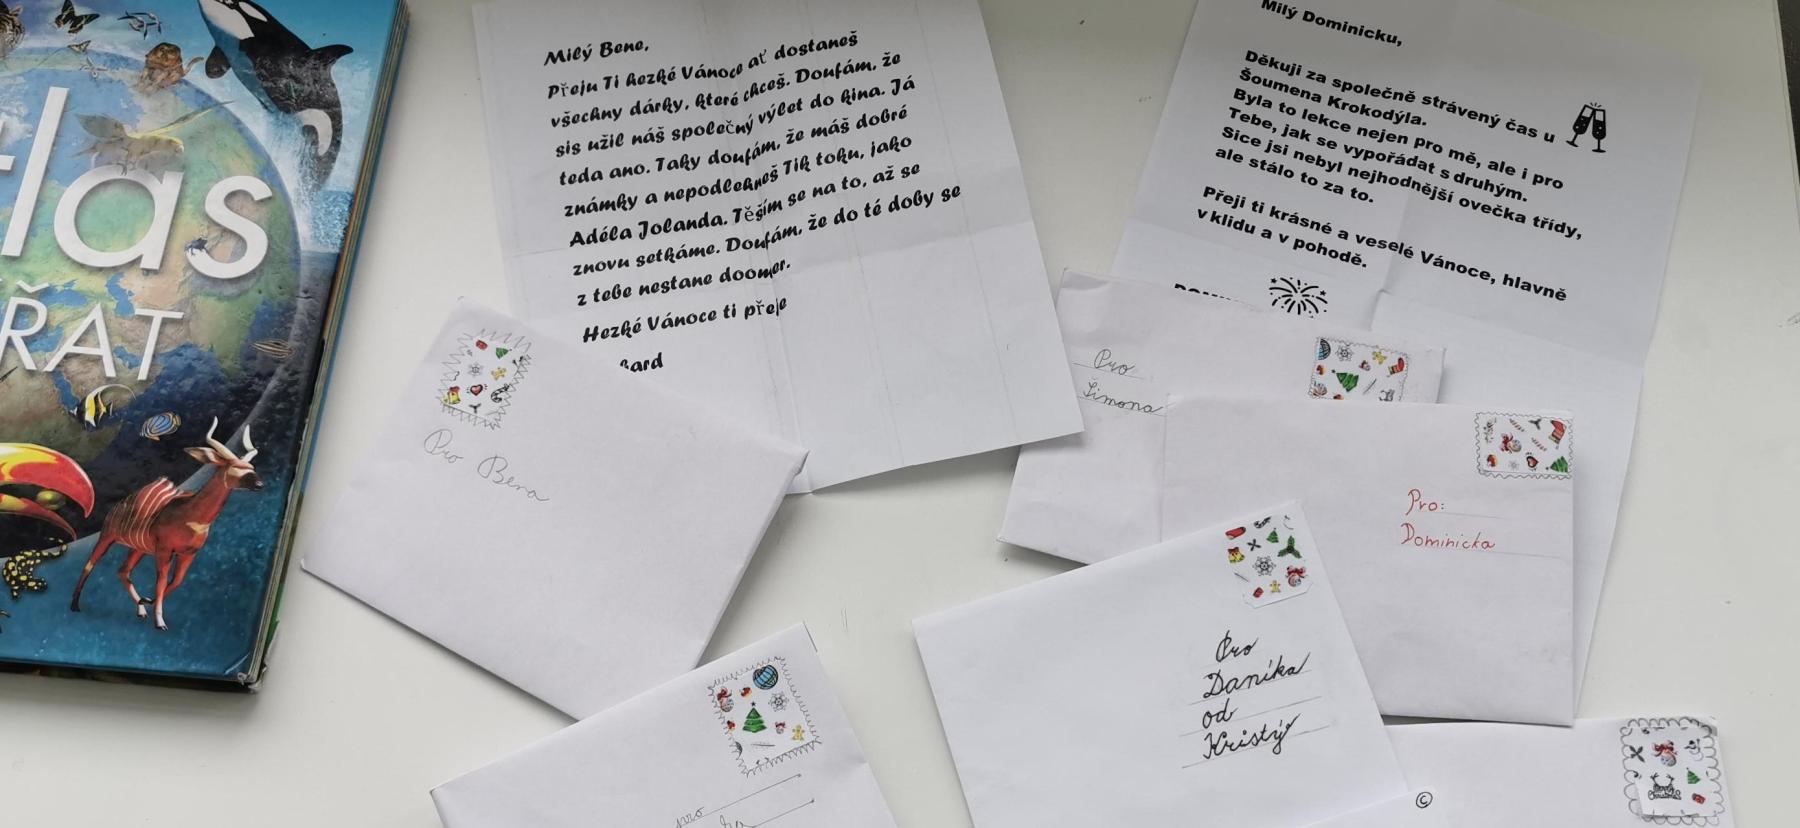 tlas
ŘAT
Milý Bene,
Přeju Ti hezké Vánoce ať dostaneš
všechny dárky, které chceš. Doufám, že
sis užil náš společný výlet do kina. Já
teda ano. Taky doufám, že máš dobré
známky a nepodlehneš Tik toku, jako
Adéla Jolanda. Těším se na to, až se
znovu setkáme. Doufám, že do té doby se
z tebe nestane doomer.
Hezké Vánoce ti přeje
Milý Dominicku,
Děkuji za společně strávený čas u
Šoumena Krokodýla.
Byla to lekce nejen pro mě, ale i pro
Tebe, jak se vypořádat s druhým.
Sice jsi nebyl nejhodnější ovečka třídy,
ale stálo to za to.
Přeji ti krásné a veselé Vánoce, hlavně
v klidu a v pohodě.
Pro Bena
Pro
Šimona
Pro:
Dominicka
Pro
Daníka
od
Kristý
pro
©